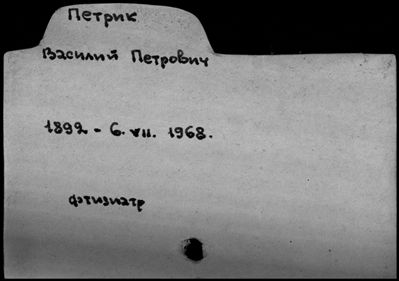 Петрик
Василий Петрович
1892 - 6. VII. 1968.
фтизиатр